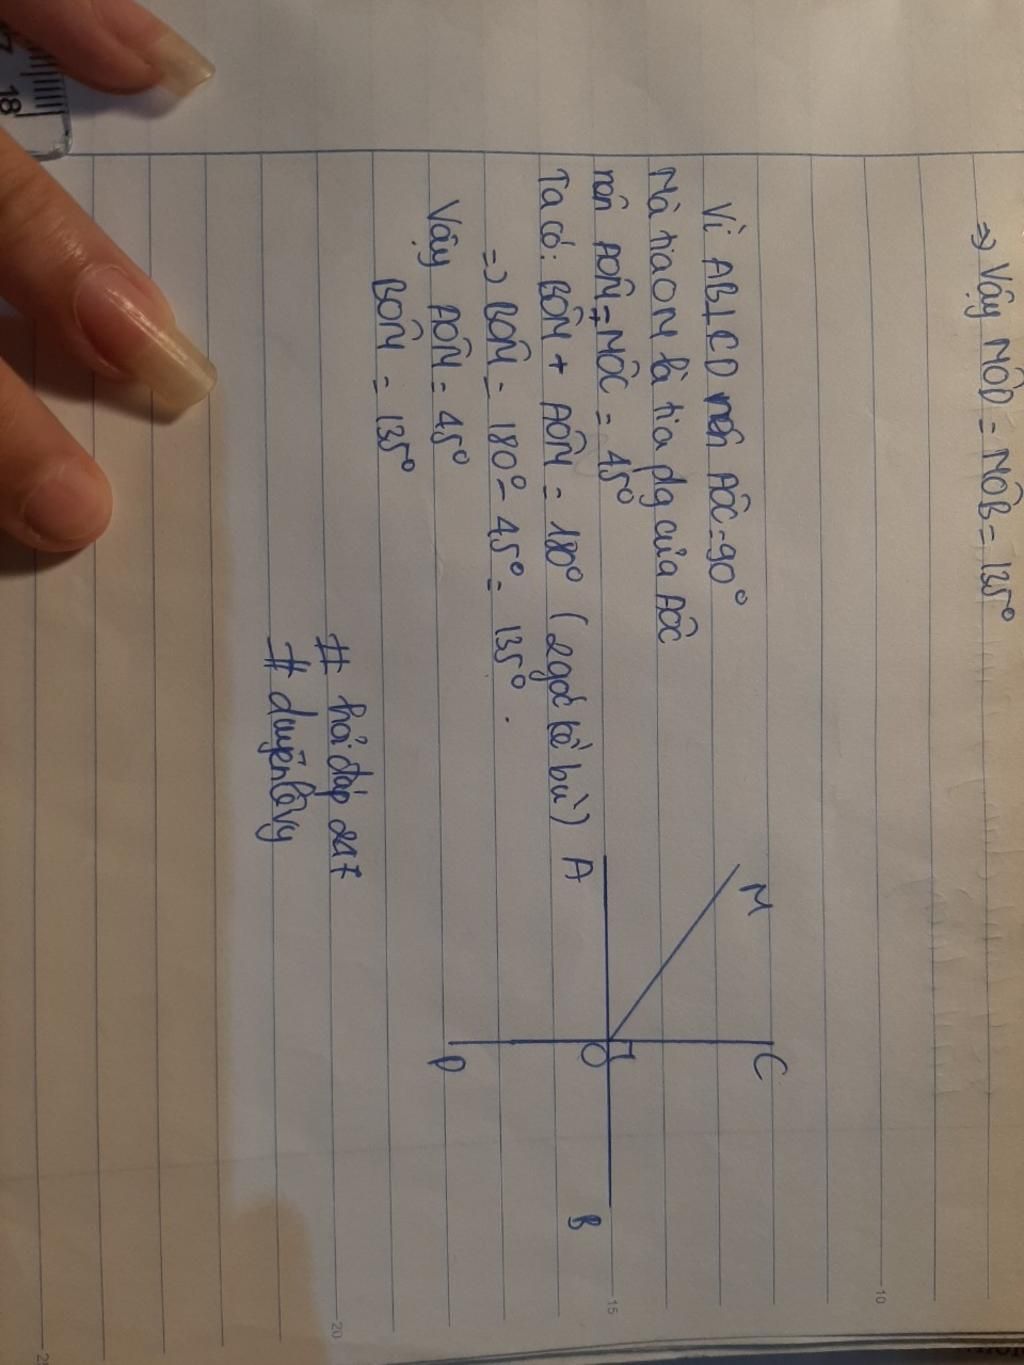 => Vậy MÔD = MÔB = 135°
Vì AB⊥CD nên AÔC=90°
Mà tia OM là tia pg của AÔC
nên AÔM = MÔC = 45°
Ta có: BÔM + AÔM = 180° (2 góc kề bù)
=> BÔM = 180° - 45° = 135°.
Vậy AÔM = 45°
BÔM = 135°
# hỏi đáp 247
# duyênlêvy
M
C
A
O
B
D
10
15
20
2
18